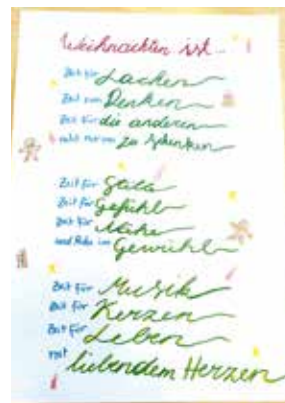 Weihnachten ist...
Zeit für Lachen
Zeit zum Denken
Zeit für die anderen
nicht nur um zu schenken
Zeit für Stille
Zeit für Gefühl
Zeit für Nähe
und Ruhe im Gewühl
Zeit für Musik
Zeit für Kerzen
Zeit für Leben
mit liebendem Herzen